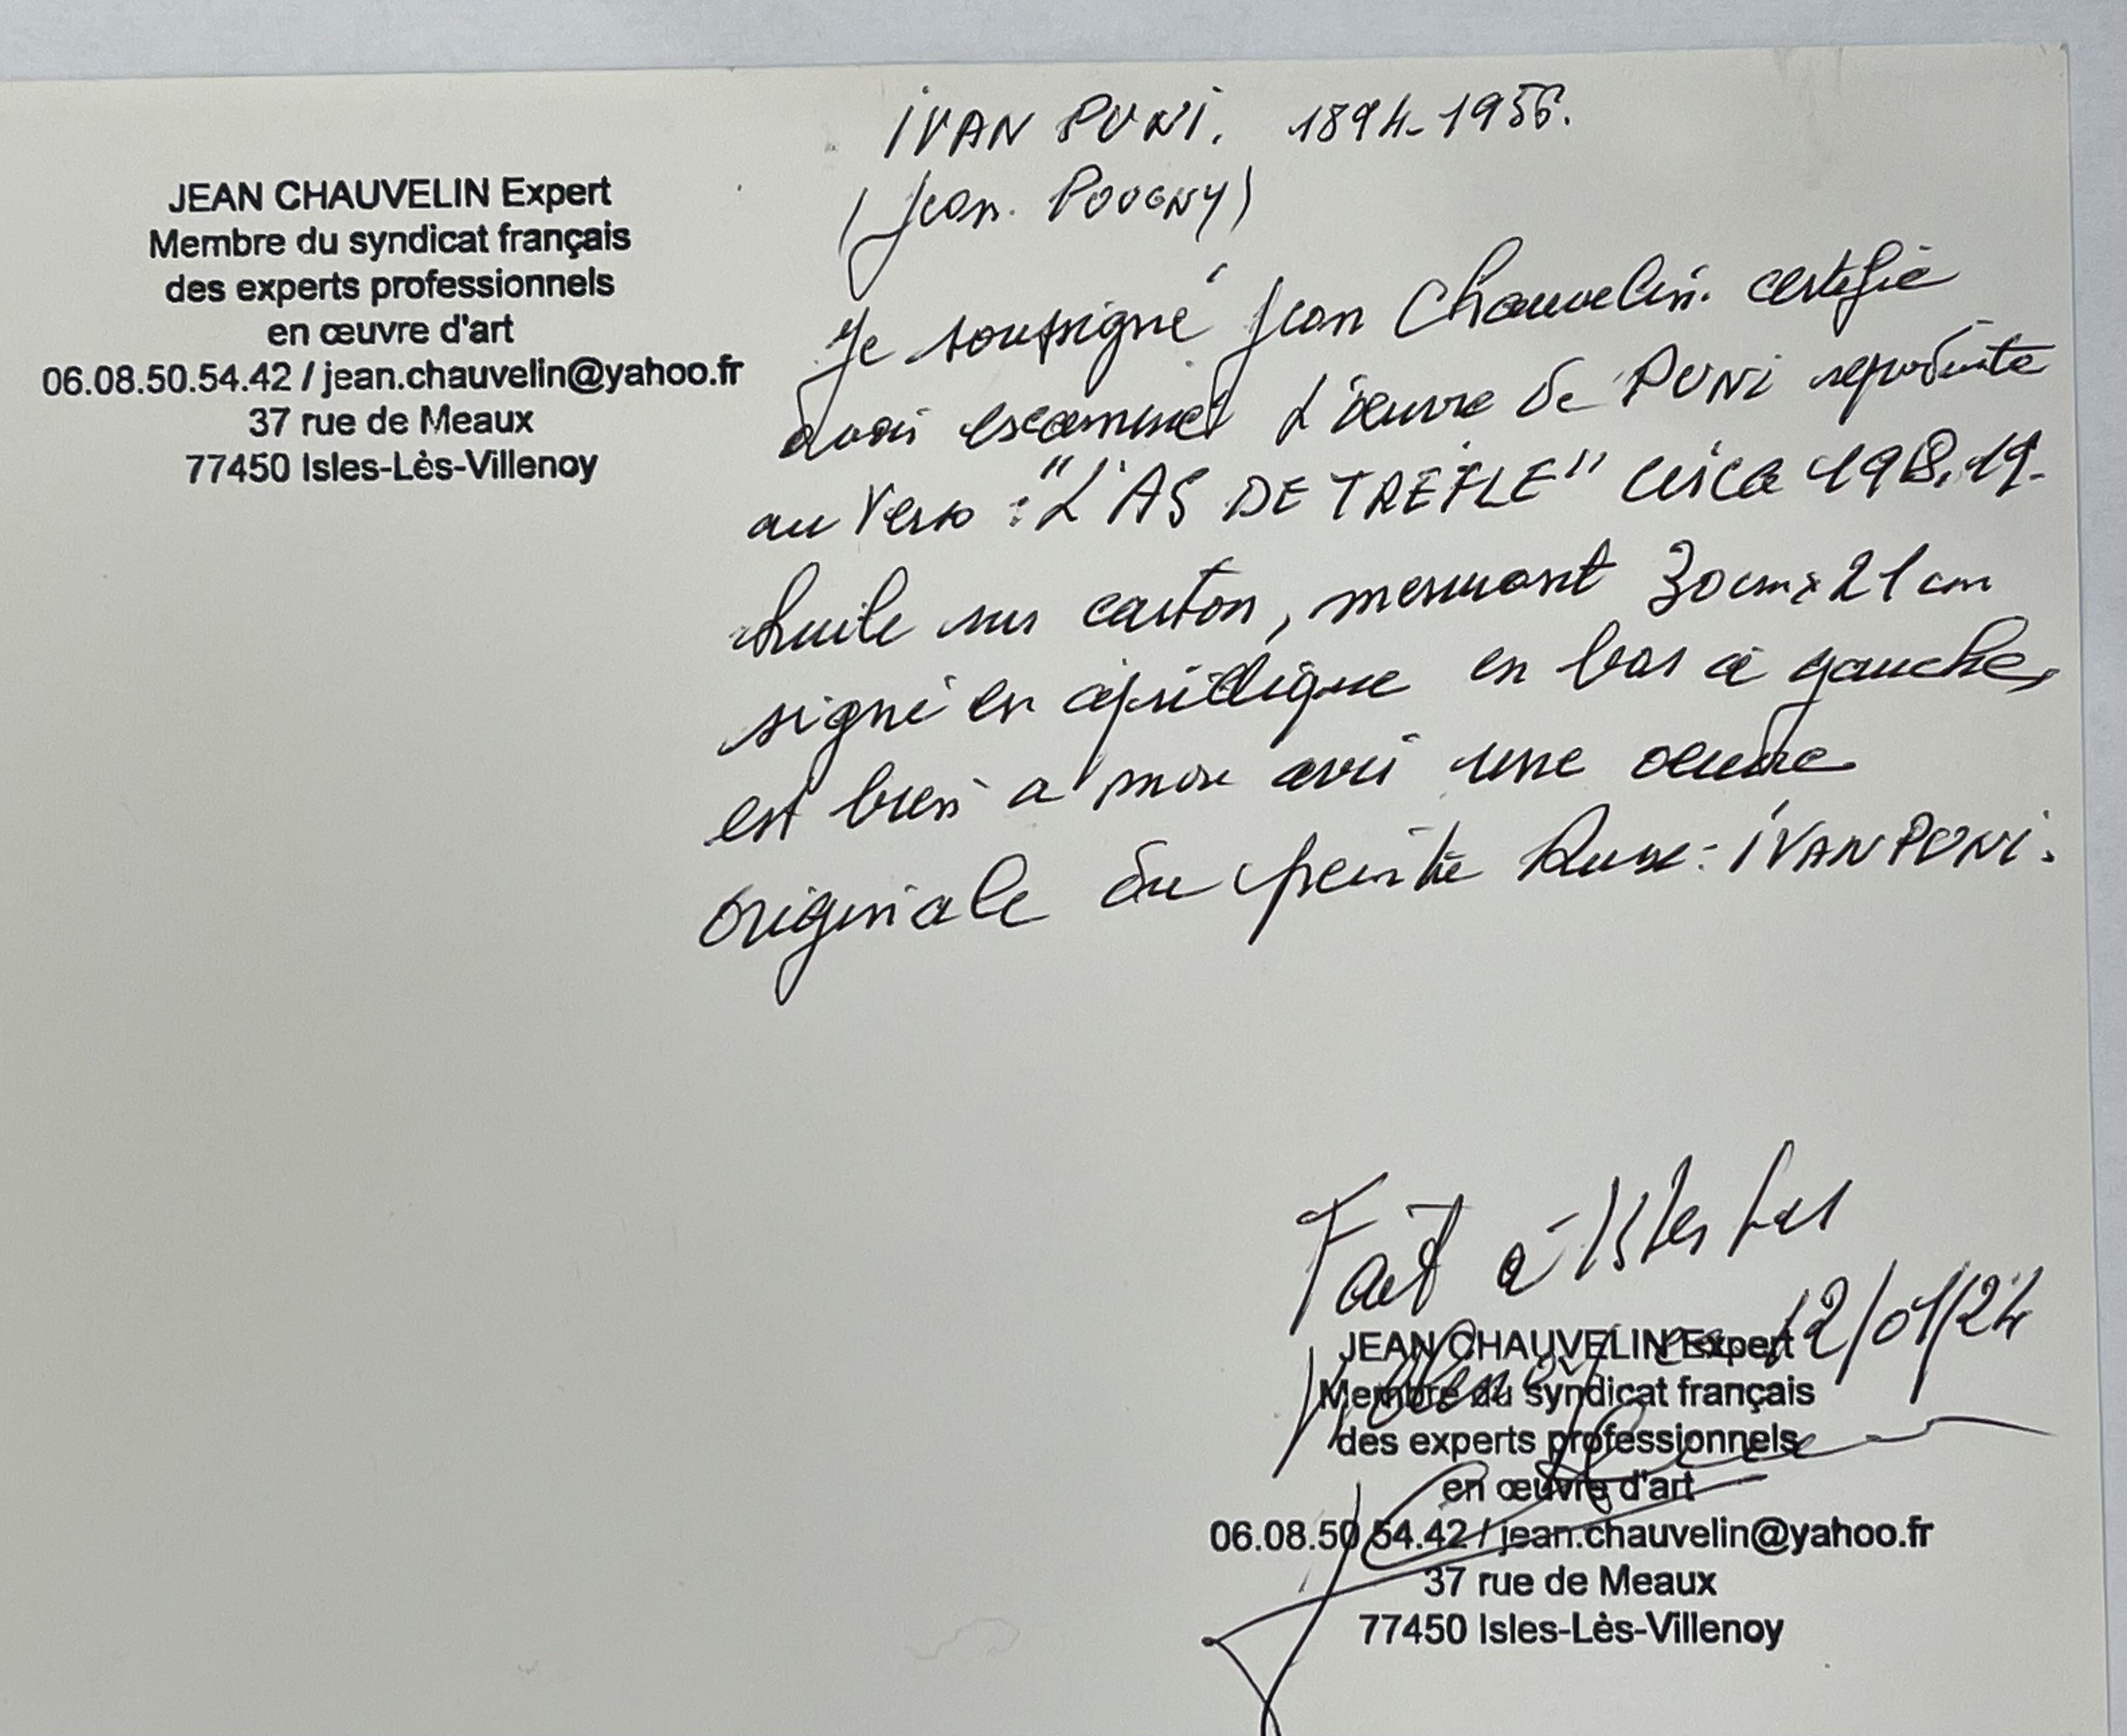 JEAN CHAUVELIN Expert
Membre du syndicat français
des experts professionnels
en œuvre d'art
06.08.50.54.42 / jean.chauvelin@yahoo.fr
37 rue de Meaux
77450 Isles-Lès-Villenoy
IVAN PUNI. 1894-1956.
(Jean. POUGNY)
Je soussigné Jean Chauvelin. certifie
avoir examiné L'œuvre de PUNI reproduite
au verso : "L'AS DE TREFLE" circa 1918.19.
huile sur carton, mesurant 30cm x 21 cm
signé en cyrillique en bas à gauche,
est bien a mon avis une oeuvre
originale du peintre Russe: IVAN PUNI.
Fait à Isles Les
Villenoy le 12/01/24
JEAN CHAUVELIN Expert
Membre du syndicat français
des experts professionnels
en œuvre d'art
06.08.50.54.42 / jean.chauvelin@yahoo.fr
37 rue de Meaux
77450 Isles-Lès-Villenoy